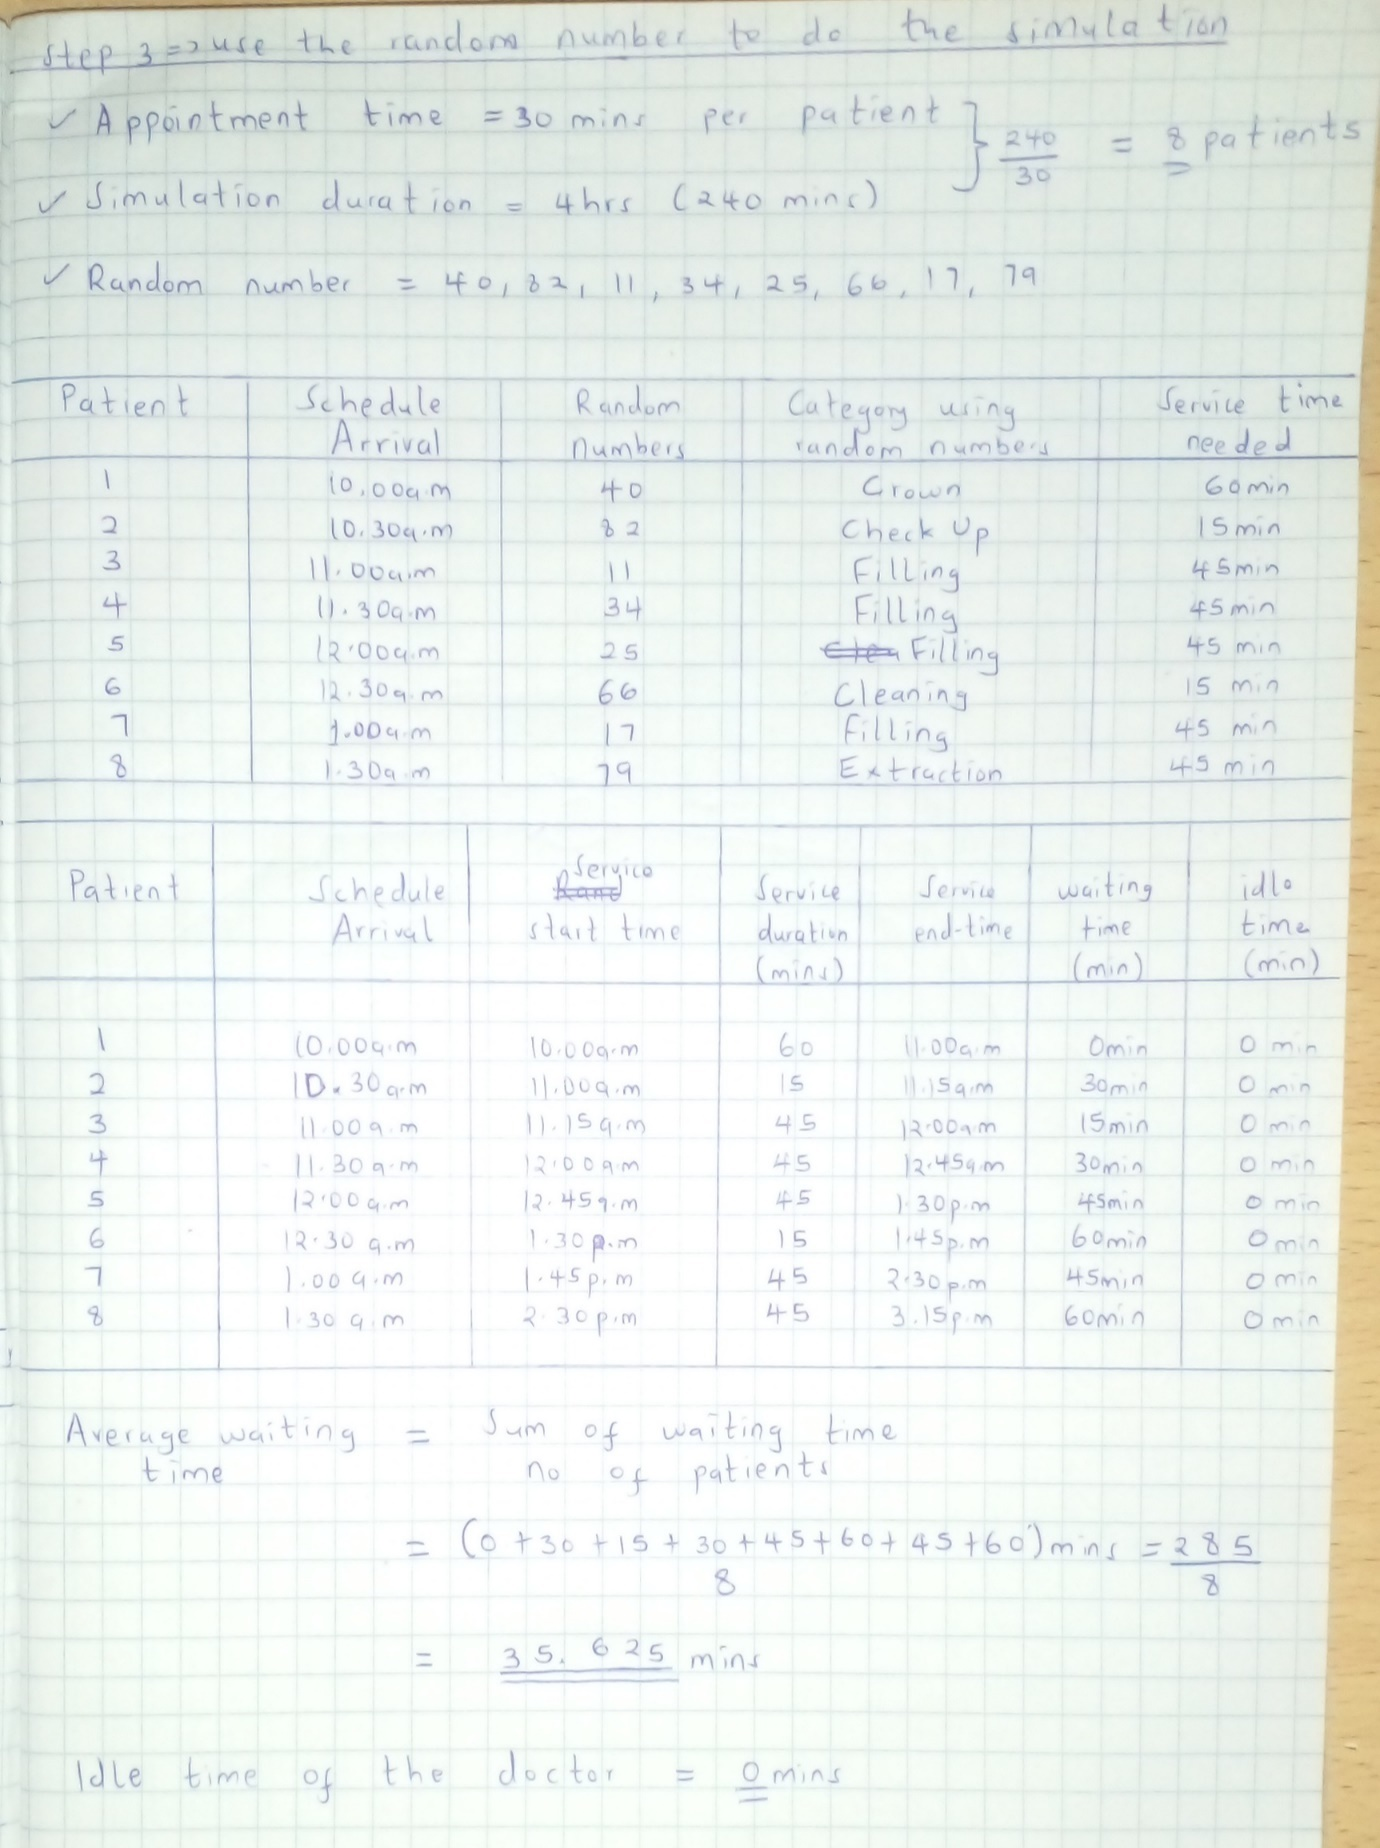 Step 3 => use the random number to do the simulation
✓ Appointment time = 30 mins per patient } 240/30 = 8 patients
✓ Simulation duration = 4hrs (240 mins)
✓ Random number = 40, 82, 11, 34, 25, 66, 17, 79
Patient Schedule Arrival Random numbers Category using random numbers Service time needed
1 10.00a.m 40 Crown 60min
2 10.30a.m 82 Check Up 15min
3 11.00a.m 11 Filling 45min
4 11.30a.m 34 Filling 45min
5 12.00a.m 25 Filling 45 min
6 12.30a.m 66 Cleaning 15 min
7 1.00a.m 17 Filling 45 min
8 1.30a.m 79 Extraction 45 min
Patient Schedule Arrival Service start time Service duration (mins) Service end-time waiting time (min) idle time (min)
1 10.00a.m 10.00a.m 60 11.00a.m 0min 0 min
2 10.30a.m 11.00a.m 15 11.15a.m 30min 0 min
3 11.00a.m 11.15a.m 45 12.00a.m 15min 0 min
4 11.30a.m 12.00a.m 45 12.45a.m 30min 0 min
5 12.00a.m 12.45a.m 45 1.30p.m 45min 0 min
6 12.30a.m 1.30p.m 15 1.45p.m 60min 0min
7 1.00a.m 1.45p.m 45 2.30p.m 45min 0min
8 1.30a.m 2.30p.m 45 3.15p.m 60min 0min
Average waiting = Sum of waiting time
time no of patients
= (0 + 30 + 15 + 30 + 45 + 60 + 45 + 60) mins = 285
8 8
= 35.625 mins
Idle time of the doctor = 0mins